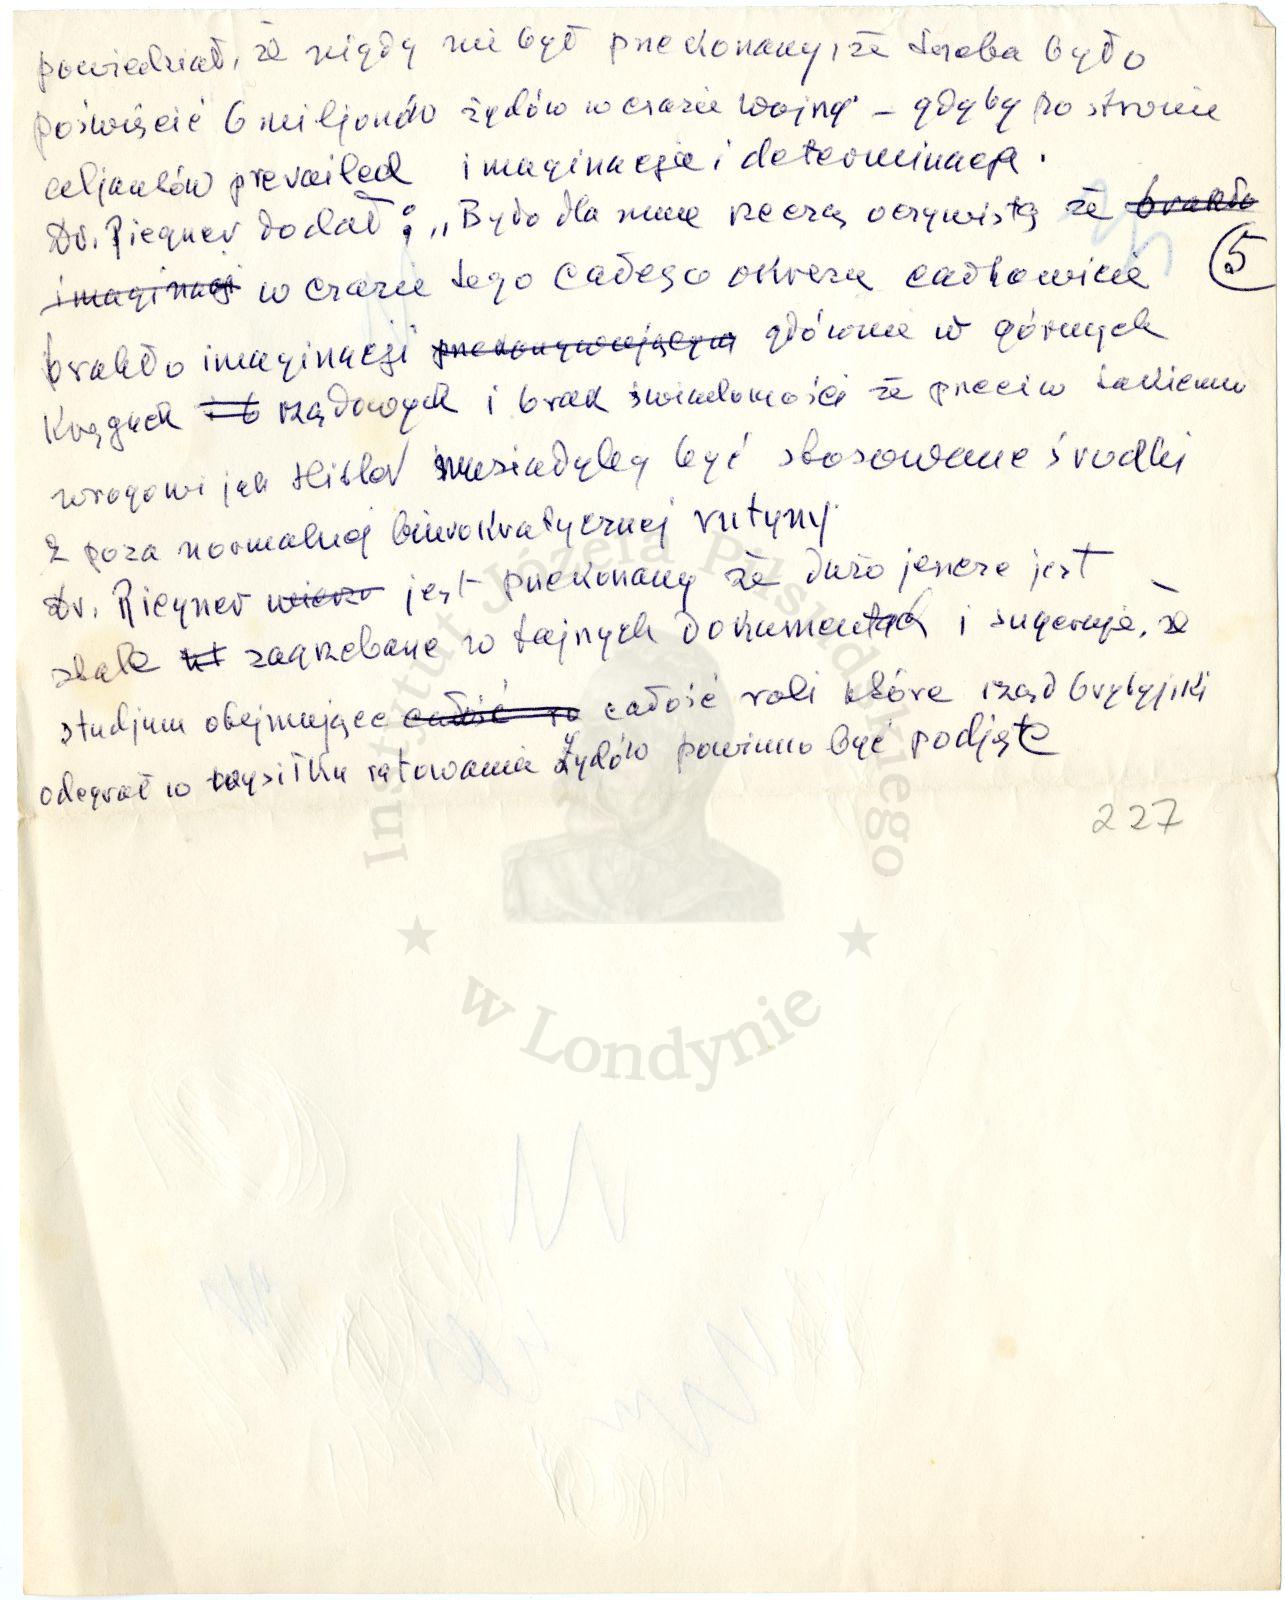 powiedział, że nigdy nie był przekonany, że trzeba było
poświęcić 6 miljonów żydów w czasie wojny – gdyby po stronie
aljantów prevailed imaginacja i determinacja.
Dr. Riegner dodał: „Było dla mnie rzeczą oczywistą że brakło
5
imaginacji w czasie tego całego okresu całkowicie
brakło imaginacji przekonywującym głównie w górnych
Kręgach i b rządowych i brak świadomości że przeciw takiemu
wrogowi jak Hitler musiałyby być stosowane środki
z poza normalnej biurokratycznej rutyny.
Dr. Riegner jest przekonany że dużo jeszcze jest
stale zagrzebane w tajnych dokumentach i sugeruje, że
studjum obejmujące całość ro całość roli które rząd brytyjski
odegrał w wysiłku ratowania Żydów powinno być podjęte
227
Instytut Józefa Piłsudskiego
w Londynie